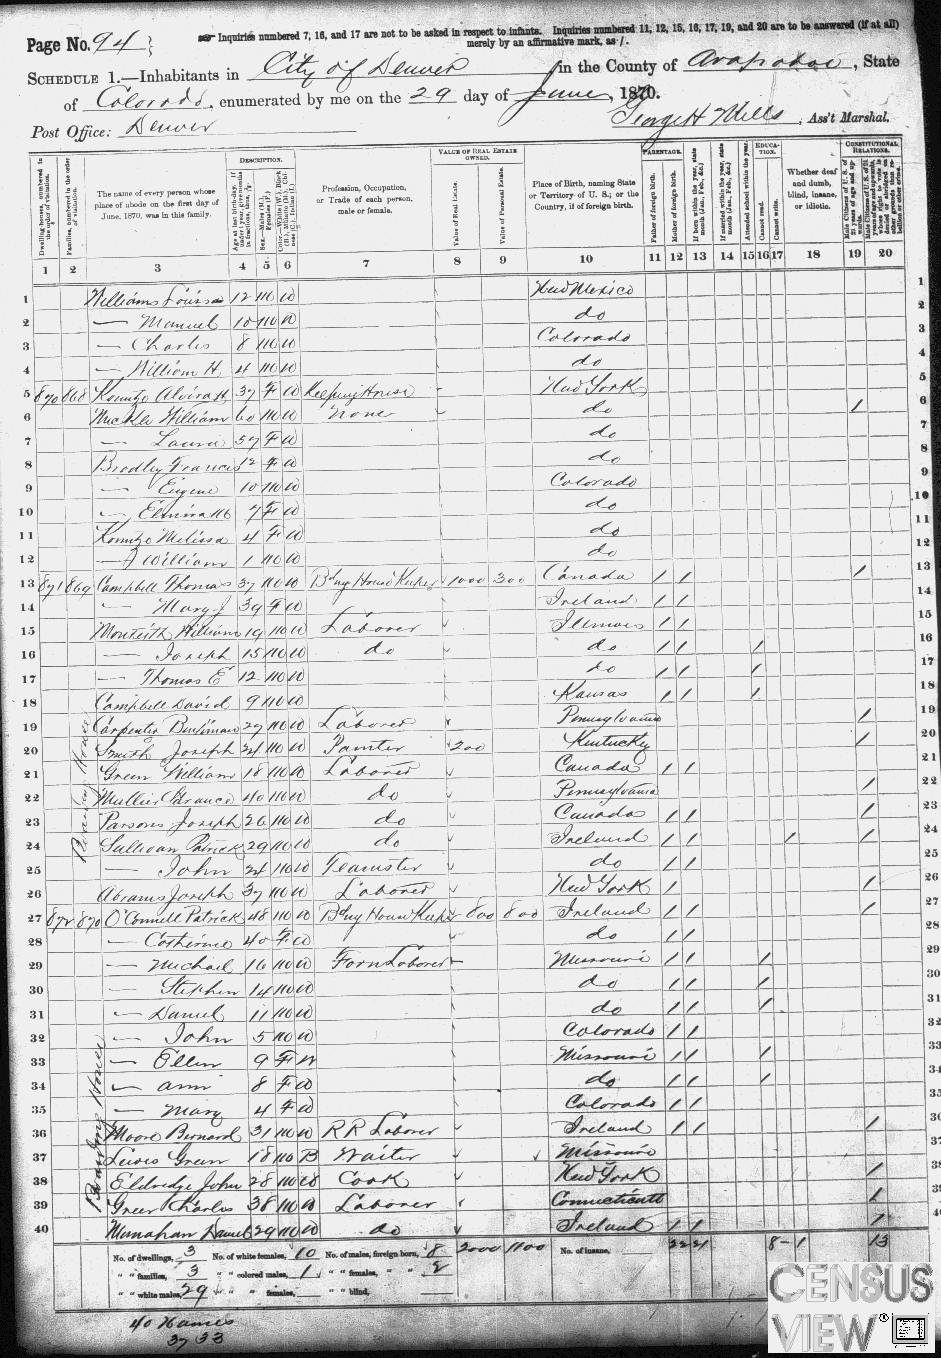 Page No. 94
Inquiries numbered 7, 16, and 17 are not to be asked in respect to infants. Inquiries numbered 11, 12, 15, 16, 17, 19, and 20 are to be answered (if at all)
merely by an affirmative mark, as /.
SCHEDULE 1.—Inhabitants in City of Denver, in the County of Arapahoe, State
of Colorado, enumerated by me on the 29 day of June, 1870.
Post Office: Denver George H Mills, Ass't Marshal.
Dwelling-houses, numbered in the order of visitation.
Families, numbered in the order of visitation.
The name of every person whose place of abode on the first day of June, 1870, was in this family.
DESCRIPTION.
Profession, Occupation, or Trade of each person, male or female.
VALUE OF REAL ESTATE OWNED.
Value of Real Estate.
Value of Personal Estate.
Place of Birth, naming State or Territory of U. S.; or the Country, if of foreign birth.
PARENTAGE.
Father of foreign birth.
Mother of foreign birth.
If born within the year, state month (Jan., Feb., &c.)
If married within the year, state month (Jan., Feb., &c.)
EDUCATION.
Attended school within the year.
Cannot read.
Cannot write.
Whether deaf and dumb, blind, insane, or idiotic.
CONSTITUTIONAL RELATIONS.
1 2 3 4 5 6 7 8 9 10 11 12 13 14 15 16 17 18 19 20
1 Williams Louisa 12 M W New Mexico 1
2 — Manuel 10 M W do 2
3 — Charles 8 M W Colorado 3
4 — William H 4 M W do 4
5 870 868 Kountze Alvira H 37 F W Keeping House New York 5
6 William 60 M W None do / 6
7 — Laura 57 F W do 7
8 Bradley Frances 12 F W do 8
9 — Eugene 10 M W Colorado 9
10 — Elmira M 7 F W do 10
11 Kountze Melissa 4 F W do 11
12 — William 1 M W do 12
13 871 869 Campbell Thomas 37 M W Bdng House Keeper 1000 300 Canada / / / 13
14 — Mary J 39 F W Ireland / / 14
15 Monteith William 19 M W Laborer Illinois / / 15
16 — Joseph 15 M W do do / / / 16
17 — Thomas E 12 M W do / / / 17
18 Campbell David 9 M W Kansas / / / 18
19 Carpenter Benjiman 27 M W Laborer Pennsylvania / 19
20 Smith Joseph 24 M W Painter 200 Kentucky / 20
21 Green William 18 M W Laborer Canada / / 21
22 40 M W do Pennsylvania / 22
23 Parsons Joseph 26 M W do Canada / / / 23
24 Sullivan Patrick 29 M W do Ireland / / / / 24
25 — John 24 M W Teamster do / / 25
26 Abrams Joseph 37 M W Laborer New York / / 26
27 872 870 O'Connell Patrick 48 M W Bdng House Keeper 800 800 Ireland / / / 27
28 — Catherine 40 F W do / / 28
29 — Michael 16 M W Farm Laborer Missouri / / / 29
30 — Stephen 14 M W do / / / 30
31 — Daniel 11 M W do / / / 31
32 — John 5 M W Colorado / / 32
33 — Ellen 9 F W Missouri / / / 33
34 — Ann 8 F W do / / / 34
35 — Mary 4 F W Colorado / / 35
36 Moore Bernard 31 M W R R Laborer Ireland / / / 36
37 Lewis Green 18 M B Waiter Missouri 37
38 Eldredge John 28 M W Cook New York / 38
39 Green Charles 38 M W Laborer Connecticutt / 39
40 Monahan Daniel 29 M W do Ireland / / / 40
Boarding House
Boarding House
No. of dwellings, 3 No. of white females, 10 No. of males, foreign born, 8 2000 1100 No. of insane, 22 21 8 - 1 13
" " families, 3 " " colored males, 1 " " females, " " 2
" " white males, 29 " " females, " " blind,
40 Names
37 33
CENSUS
VIEW